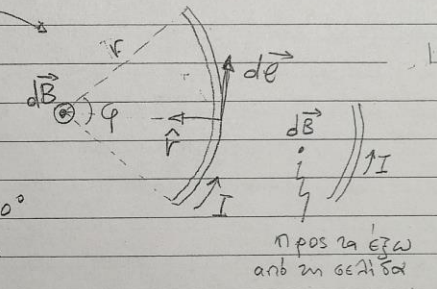 r
dB⃗
φ
r̂
dℓ⃗
I
0°
dB⃗
I
προς τα έξω
από τη σελίδα